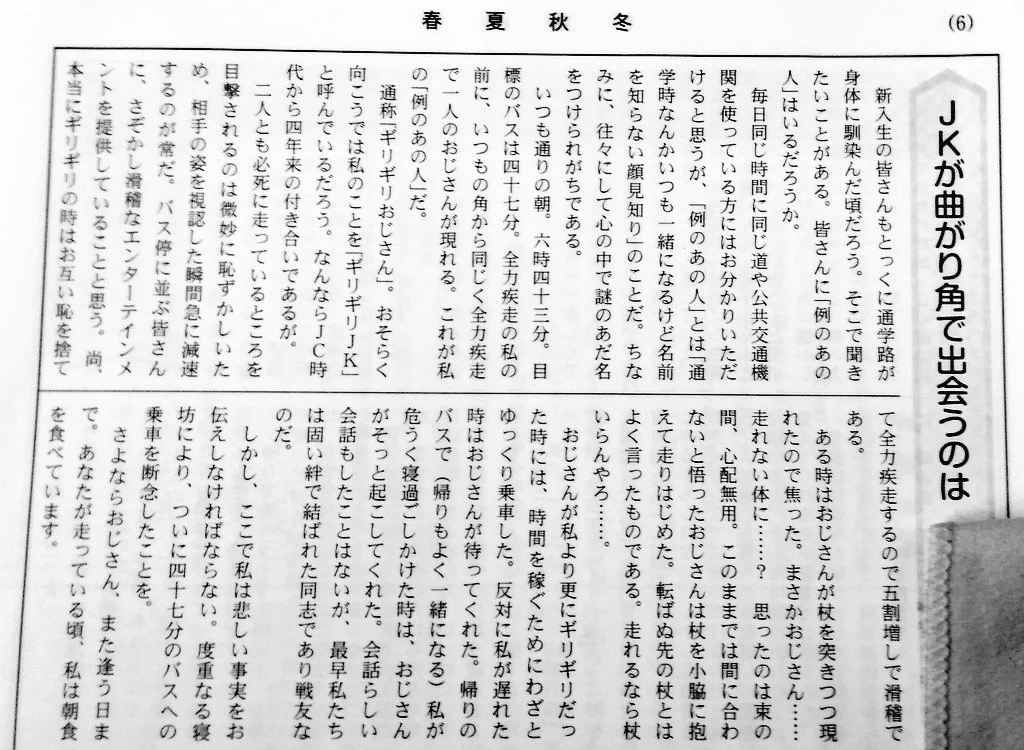 春夏秋冬
(6)
JKが曲がり角で出会うのは
新入生の皆さんもとっくに通学路が
身体に馴染んだ頃だろう。そこで聞き
たいことがある。皆さんに「例のあの
人」はいるだろうか。
毎日同じ時間に同じ道や公共交通機
関を使っている方にはお分かりいただ
けると思うが、「例のあの人」とは「通
学時なんかいつも一緒になるけど名前
を知らない顔見知り」のことだ。ちな
みに、往々にして心の中で謎のあだ名
をつけられがちである。
いつも通りの朝。六時四十三分。目
標のバスは四十七分。全力疾走の私の
前に、いつもの角から同じく全力疾走
で一人のおじさんが現れる。これが私
の「例のあの人」だ。
通称「ギリギリおじさん」。おそらく
向こうでは私のことを「ギリギリJK」
と呼んでいるだろう。なんならJC時
代から四年来の付き合いであるが。
二人とも必死に走っているところを
目撃されるのは微妙に恥ずかしいた
め、相手の姿を視認した瞬間急に減速
するのが常だ。バス停に並ぶ皆さん
に、さぞかし滑稽なエンターテインメ
ントを提供していることと思う。尚、
本当にギリギリの時はお互い恥を捨て
て全力疾走するので五割増しで滑稽で
ある。
ある時はおじさんが杖を突きつつ現
れたので焦った。まさかおじさん……
走れない体に……？　思ったのは束の
間、心配無用。このままでは間に合わ
ないと悟ったおじさんは杖を小脇に抱
えて走りはじめた。転ばぬ先の杖とは
よく言ったものである。走れるなら杖
いらんやろ……。
おじさんが私より更にギリギリだっ
た時には、時間を稼ぐためにわざと
ゆっくり乗車した。反対に私が遅れた
時はおじさんが待ってくれた。帰りの
バスで（帰りもよく一緒になる）私が
危うく寝過ごしかけた時は、おじさん
がそっと起こしてくれた。会話らしい
会話もしたことはないが、最早私たち
は固い絆で結ばれた同志であり戦友な
のだ。
しかし、ここで私は悲しい事実をお
伝えしなければならない。度重なる寝
坊により、ついに四十七分のバスへの
乗車を断念したことを。
さよならおじさん、また逢う日ま
で。あなたが走っている頃、私は朝食
を食べています。